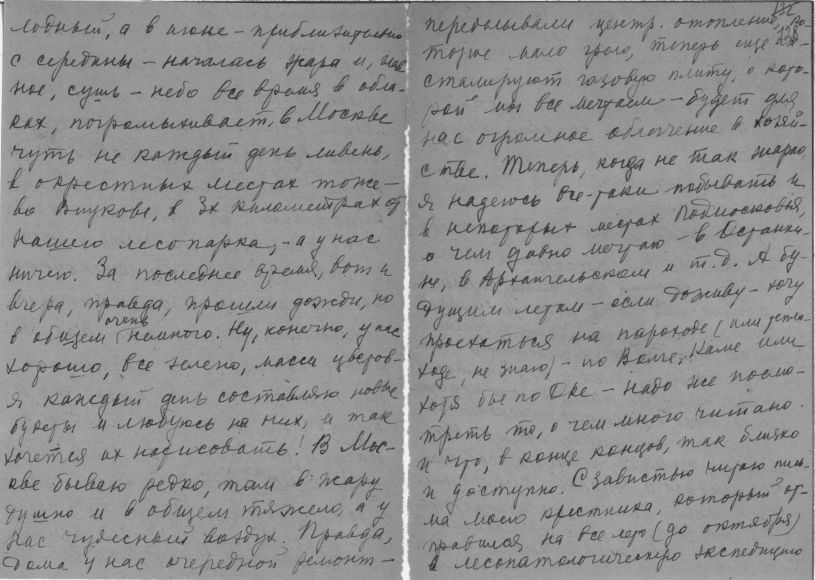 лодный, а в июне – приблизительно
с середины – началась жара и, глав
ное, сушь – небо все время в обла-
ках, погромыхивает, в Москве
чуть не каждый день ливень,
в окрестных местах тоже –
во Внукове, в 3х километрах от
нашего лесопарка, – а у нас
ничего. За последнее время, вот и
вчера, правда, прошли дожди, но
в общем очень немного. Ну, конечно, у нас
хорошо, все зелено, масса цветов –
я каждый день составляю новые
букеты и любуюсь на них, и так
хочется их нарисовать! В Мос-
кве бываю редко, там в жару
душно и в общем тяжело, а у
нас чудесный воздух. Правда,
дома у нас очередной ремонт –
переделывали центр. отопление, ко-
торое мало грело, теперь еще ин-
сталируют газовую плиту, о кото-
рой мы все мечтаем – будет для
нас огромное облегчение в хозяй-
стве. Теперь, когда не так жарко,
я надеюсь все-таки побывать и
в некоторых местах Подмосковья,
о чем давно мечтаю – в Останки-
не, в Архангельском и т.д. А бу-
дущим летом – если доживу – хочу
проехаться на пароходе (или тепло-
ходе, не знаю) – по Волге, Каме или
хотя бы по Оке – надо же посмо-
треть то, о чем много читано
и что, в конце концов, так близко
и доступно. С завистью читаю пись-
ма моего крестника, который от-
правился на все лето (до октября)
в лесопатологическую экспедицию